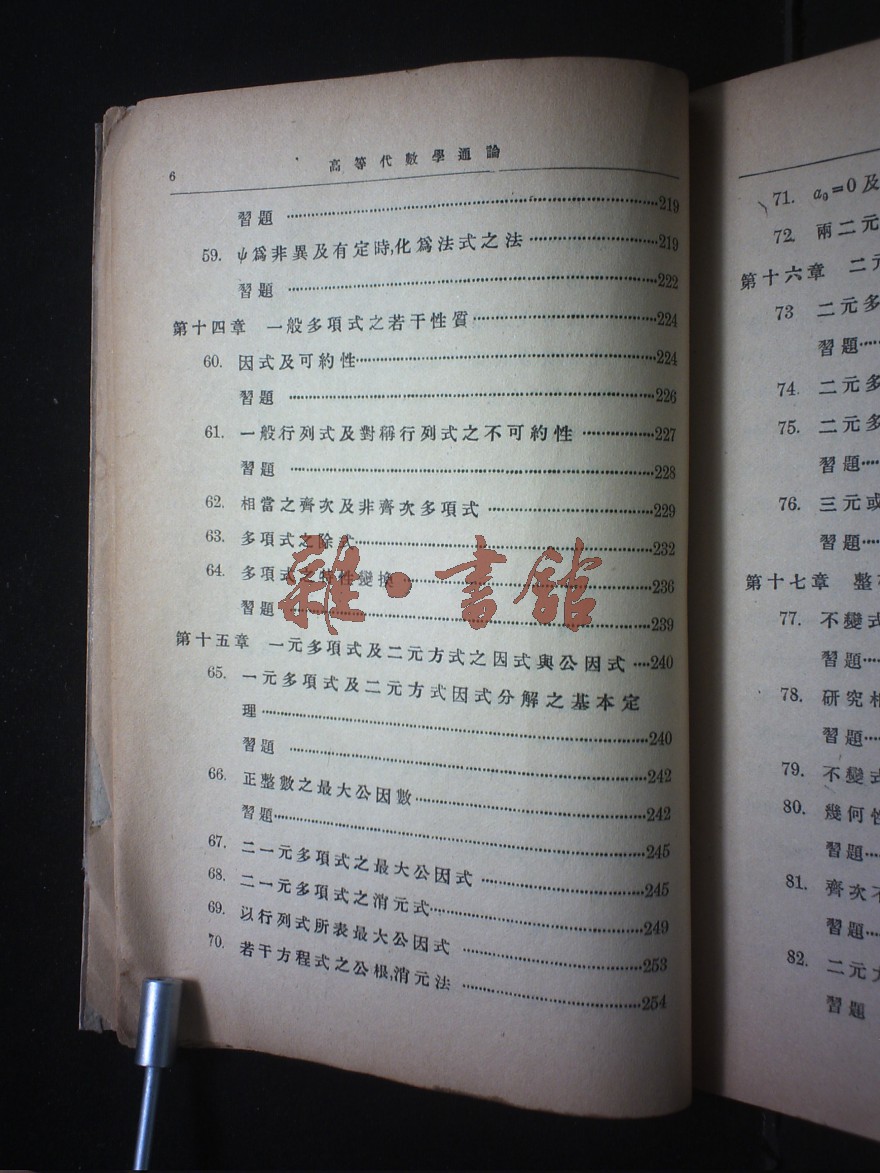 6
高等代數學通論
習題 219
59. ψ爲非異及有定時,化爲法式之法 219
習題 222
第十四章 一般多項式之若干性質 224
60. 因式及可約性 224
習題 226
61. 一般行列式及對稱行列式之不可約性 227
習題 228
62. 相當之齊次及非齊次多項式 229
63. 多項式之除式 232
64. 多項式之特性變換 236
習題 239
第十五章 一元多項式及二元方式之因式與公因式 240
65. 一元多項式及二元方式因式分解之基本定
理 240
習題 242
66. 正整數之最大公因數 242
習題 245
67. 二一元多項式之最大公因式 245
68. 二一元多項式之消元式 249
69. 以行列式所表最大公因式 253
70. 若干方程式之公根,消元法 254
雜·書館
71. a₀=0及
72. 兩二元
第十六章 二元
73 二元多
習題
74. 二元多
75. 二元多
習題
76. 三元或
習題
第十七章 整
77. 不變式
習題
78. 研究相
習題
79. 不變式
80. 幾何性
習題
81. 齊次不
習題
82. 二元
習題